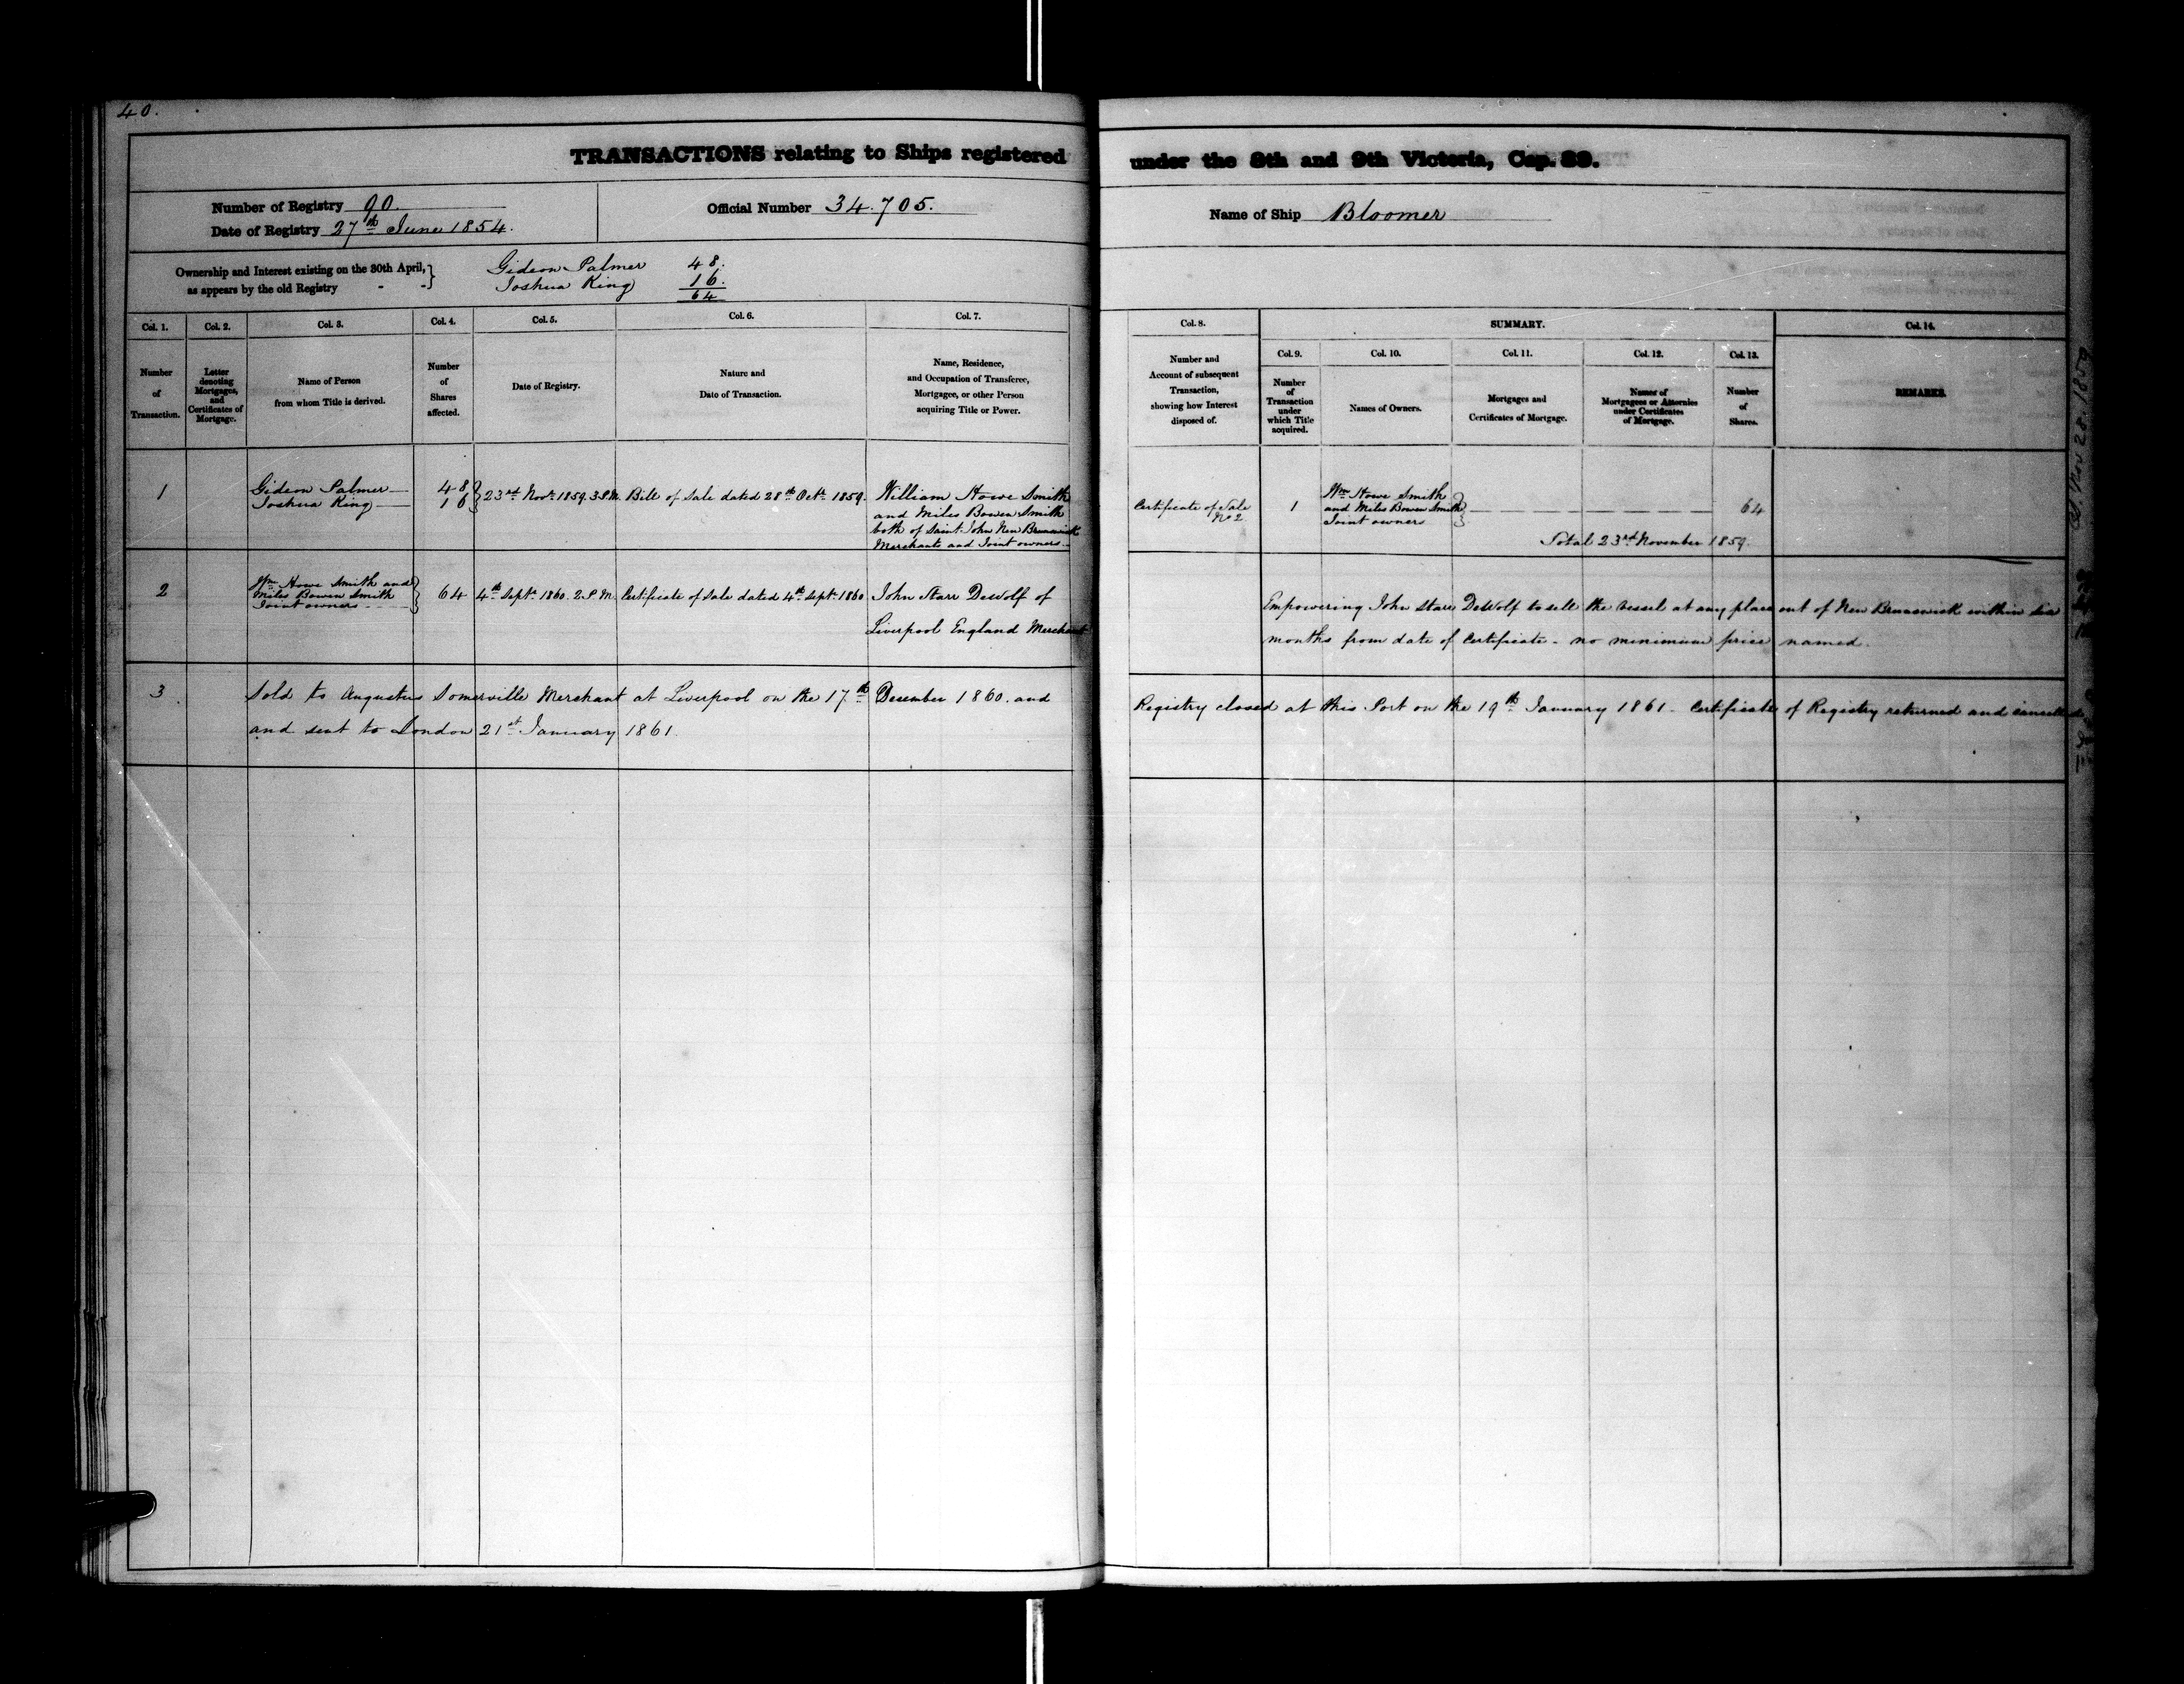 40.
TRANSACTIONS relating to Ships registered under the 8th and 9th Victoria, Cap. 89.
Number of Registry 90.
Date of Registry 27th June 1854.
Official Number 34.705.
Name of Ship Bloomer
Ownership and Interest existing on the 30th April,} as appears by the old Registry - -
Gideon Palmer 48.
Joshua King 16.
64
Col. 1. Col. 2. Col. 3. Col. 4. Col. 5. Col. 6. Col. 7. Col. 8. SUMMARY. Col. 14.
Col. 9. Col. 10. Col. 11. Col. 12. Col. 13.
Number of Transaction.
Letter denoting Mortgages, and Certificates of Mortgage.
Name of Person from whom Title is derived.
Number of Shares affected.
Date of Registry.
Nature and Date of Transaction.
Name, Residence, and Occupation of Transferee, Mortgagee, or other Person acquiring Title or Power.
Number and Account of subsequent Transaction, showing how Interest disposed of.
Number of Transaction under which Title acquired.
Names of Owners.
Mortgages and Certificates of Mortgage.
Names of Mortgagees or Attornies under Certificates of Mortgage.
Number of Shares.
REMARKS.
1
Gideon Palmer 48
Joshua King 16
23rd Novr. 1859. 3 P.M.
Bill of Sale dated 28th Octr. 1859.
William Howe Smith
and Miles Bowen Smith
both of Saint John New Brunswick
Merchants and Joint owners
Certificate of Sale
No 2
1
Wm Howe Smith
and Miles Bowen Smith
Joint owners
64
Total 23rd November 1859.
2
Wm Howe Smith and
Miles Bowen Smith
Joint owners
64
4th Sept. 1860. 2 P.M.
Certificate of Sale dated 4th Sept. 1860
John Starr DeWolf of
Liverpool England Merchant
Empowering John Starr DeWolf to sell the Vessel at any place out of New Brunswick within six
months from date of Certificate - no minimum price named.
3.
Sold to Augustus Somerville Merchant at Liverpool on the 17th December 1860. and Registry closed at this Port on the 19th January 1861. Certificate of Registry returned and cancelled
and sent to London 21st January 1861.
Nov 28. 1859